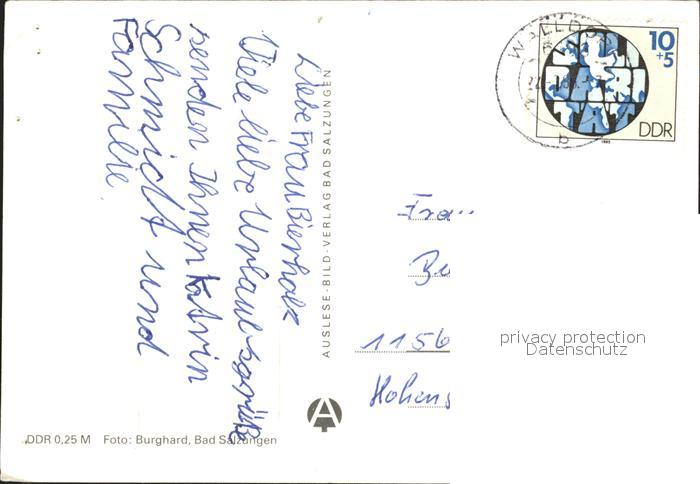 Liebe Frau Bierholz
Viele liebe Urlaubsgrüße
senden Ihnen Katrin
Schmidt und
Familie
AUSLESE-BILD-VERLAG BAD SALZUNGEN
WALLDO
b
10
+5
DDR
1983
Fra
1156
Hohens
privacy protection
Datenschutz
A
DDR 0,25 M Foto: Burghard, Bad Salzungen